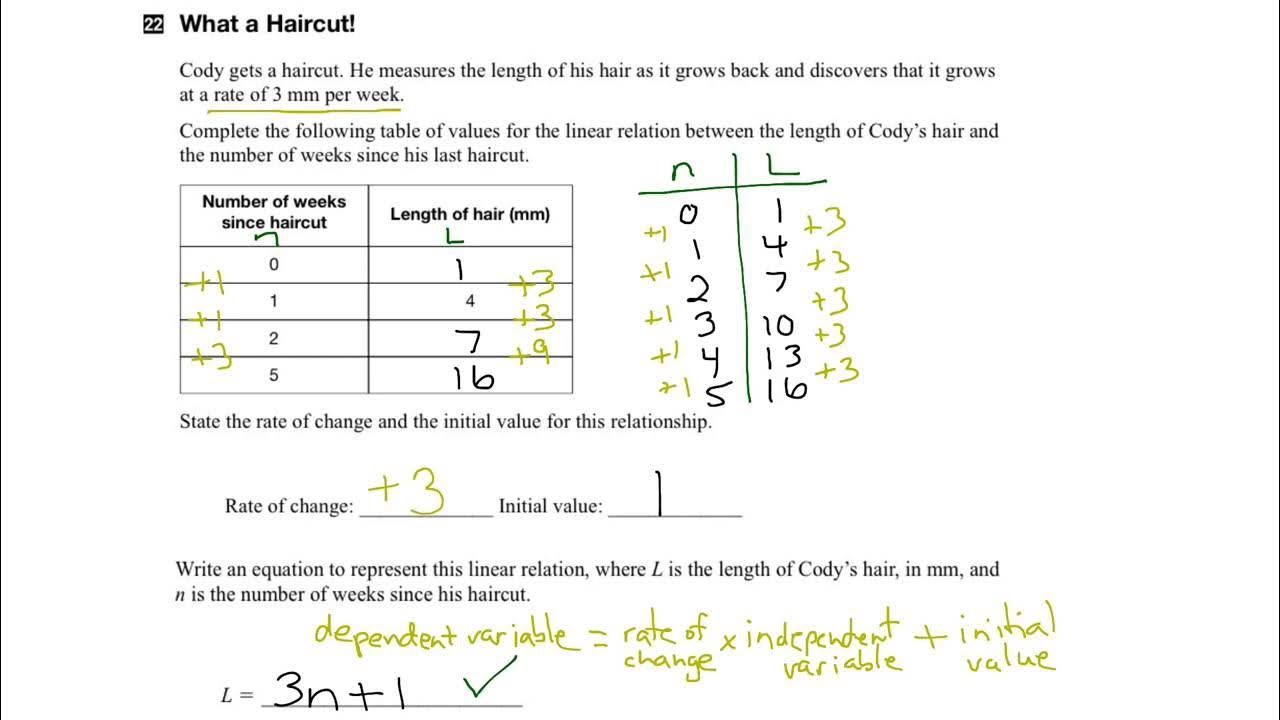 22 What a Haircut!
Cody gets a haircut. He measures the length of his hair as it grows back and discovers that it grows
at a rate of 3 mm per week.
Complete the following table of values for the linear relation between the length of Cody's hair and
the number of weeks since his last haircut.
n L
Number of weeks
since haircut
Length of hair (mm)
n L
0 1
+1 +3
1 4
+1 +3
2 7
+3 +9
5 16
0 1
+1 +3
1 4
+1 +3
2 7
+1 +3
3 10
+1 +3
4 13
+1 +3
5 16
State the rate of change and the initial value for this relationship.
Rate of change: +3 Initial value: 1
Write an equation to represent this linear relation, where L is the length of Cody's hair, in mm, and
n is the number of weeks since his haircut.
dependent variable = rate of change × independent variable + initial value
L = 3n+1 ✓